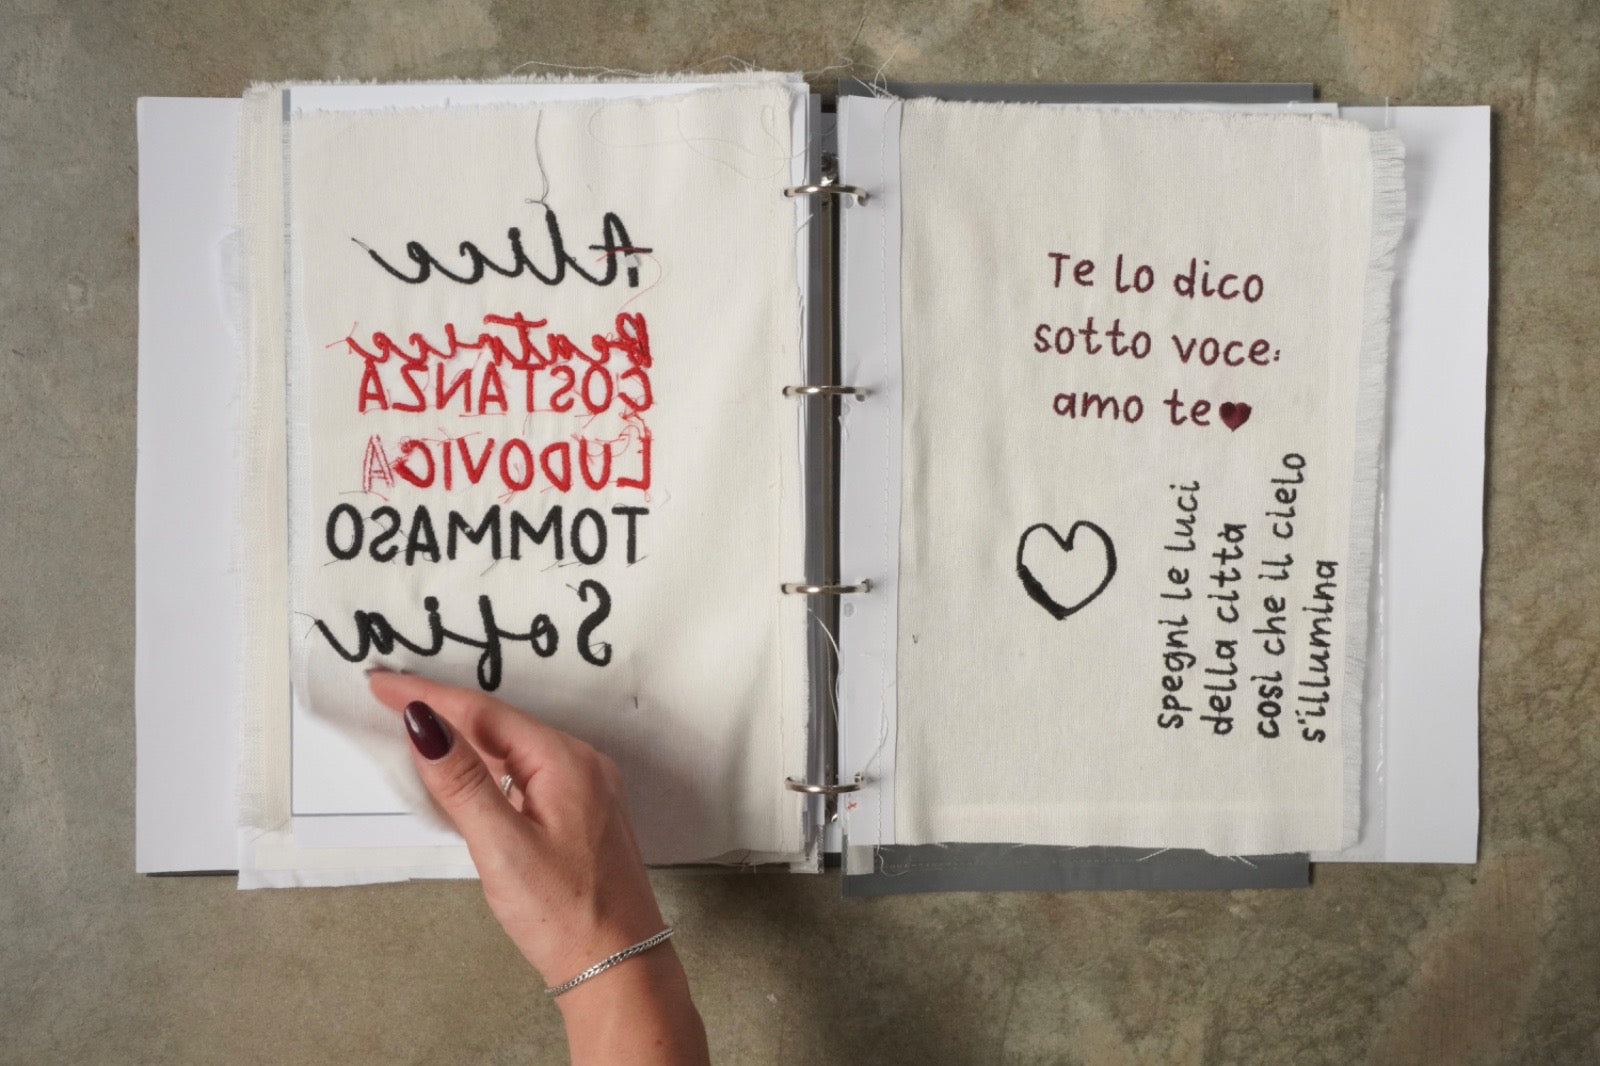 Alice
Beatrice
COSTANZA
LUDOVICA
TOMMASO
Sofia
Te lo dico
sotto voce:
amo te
spegni le luci
della città
così che il cielo
s'illumina